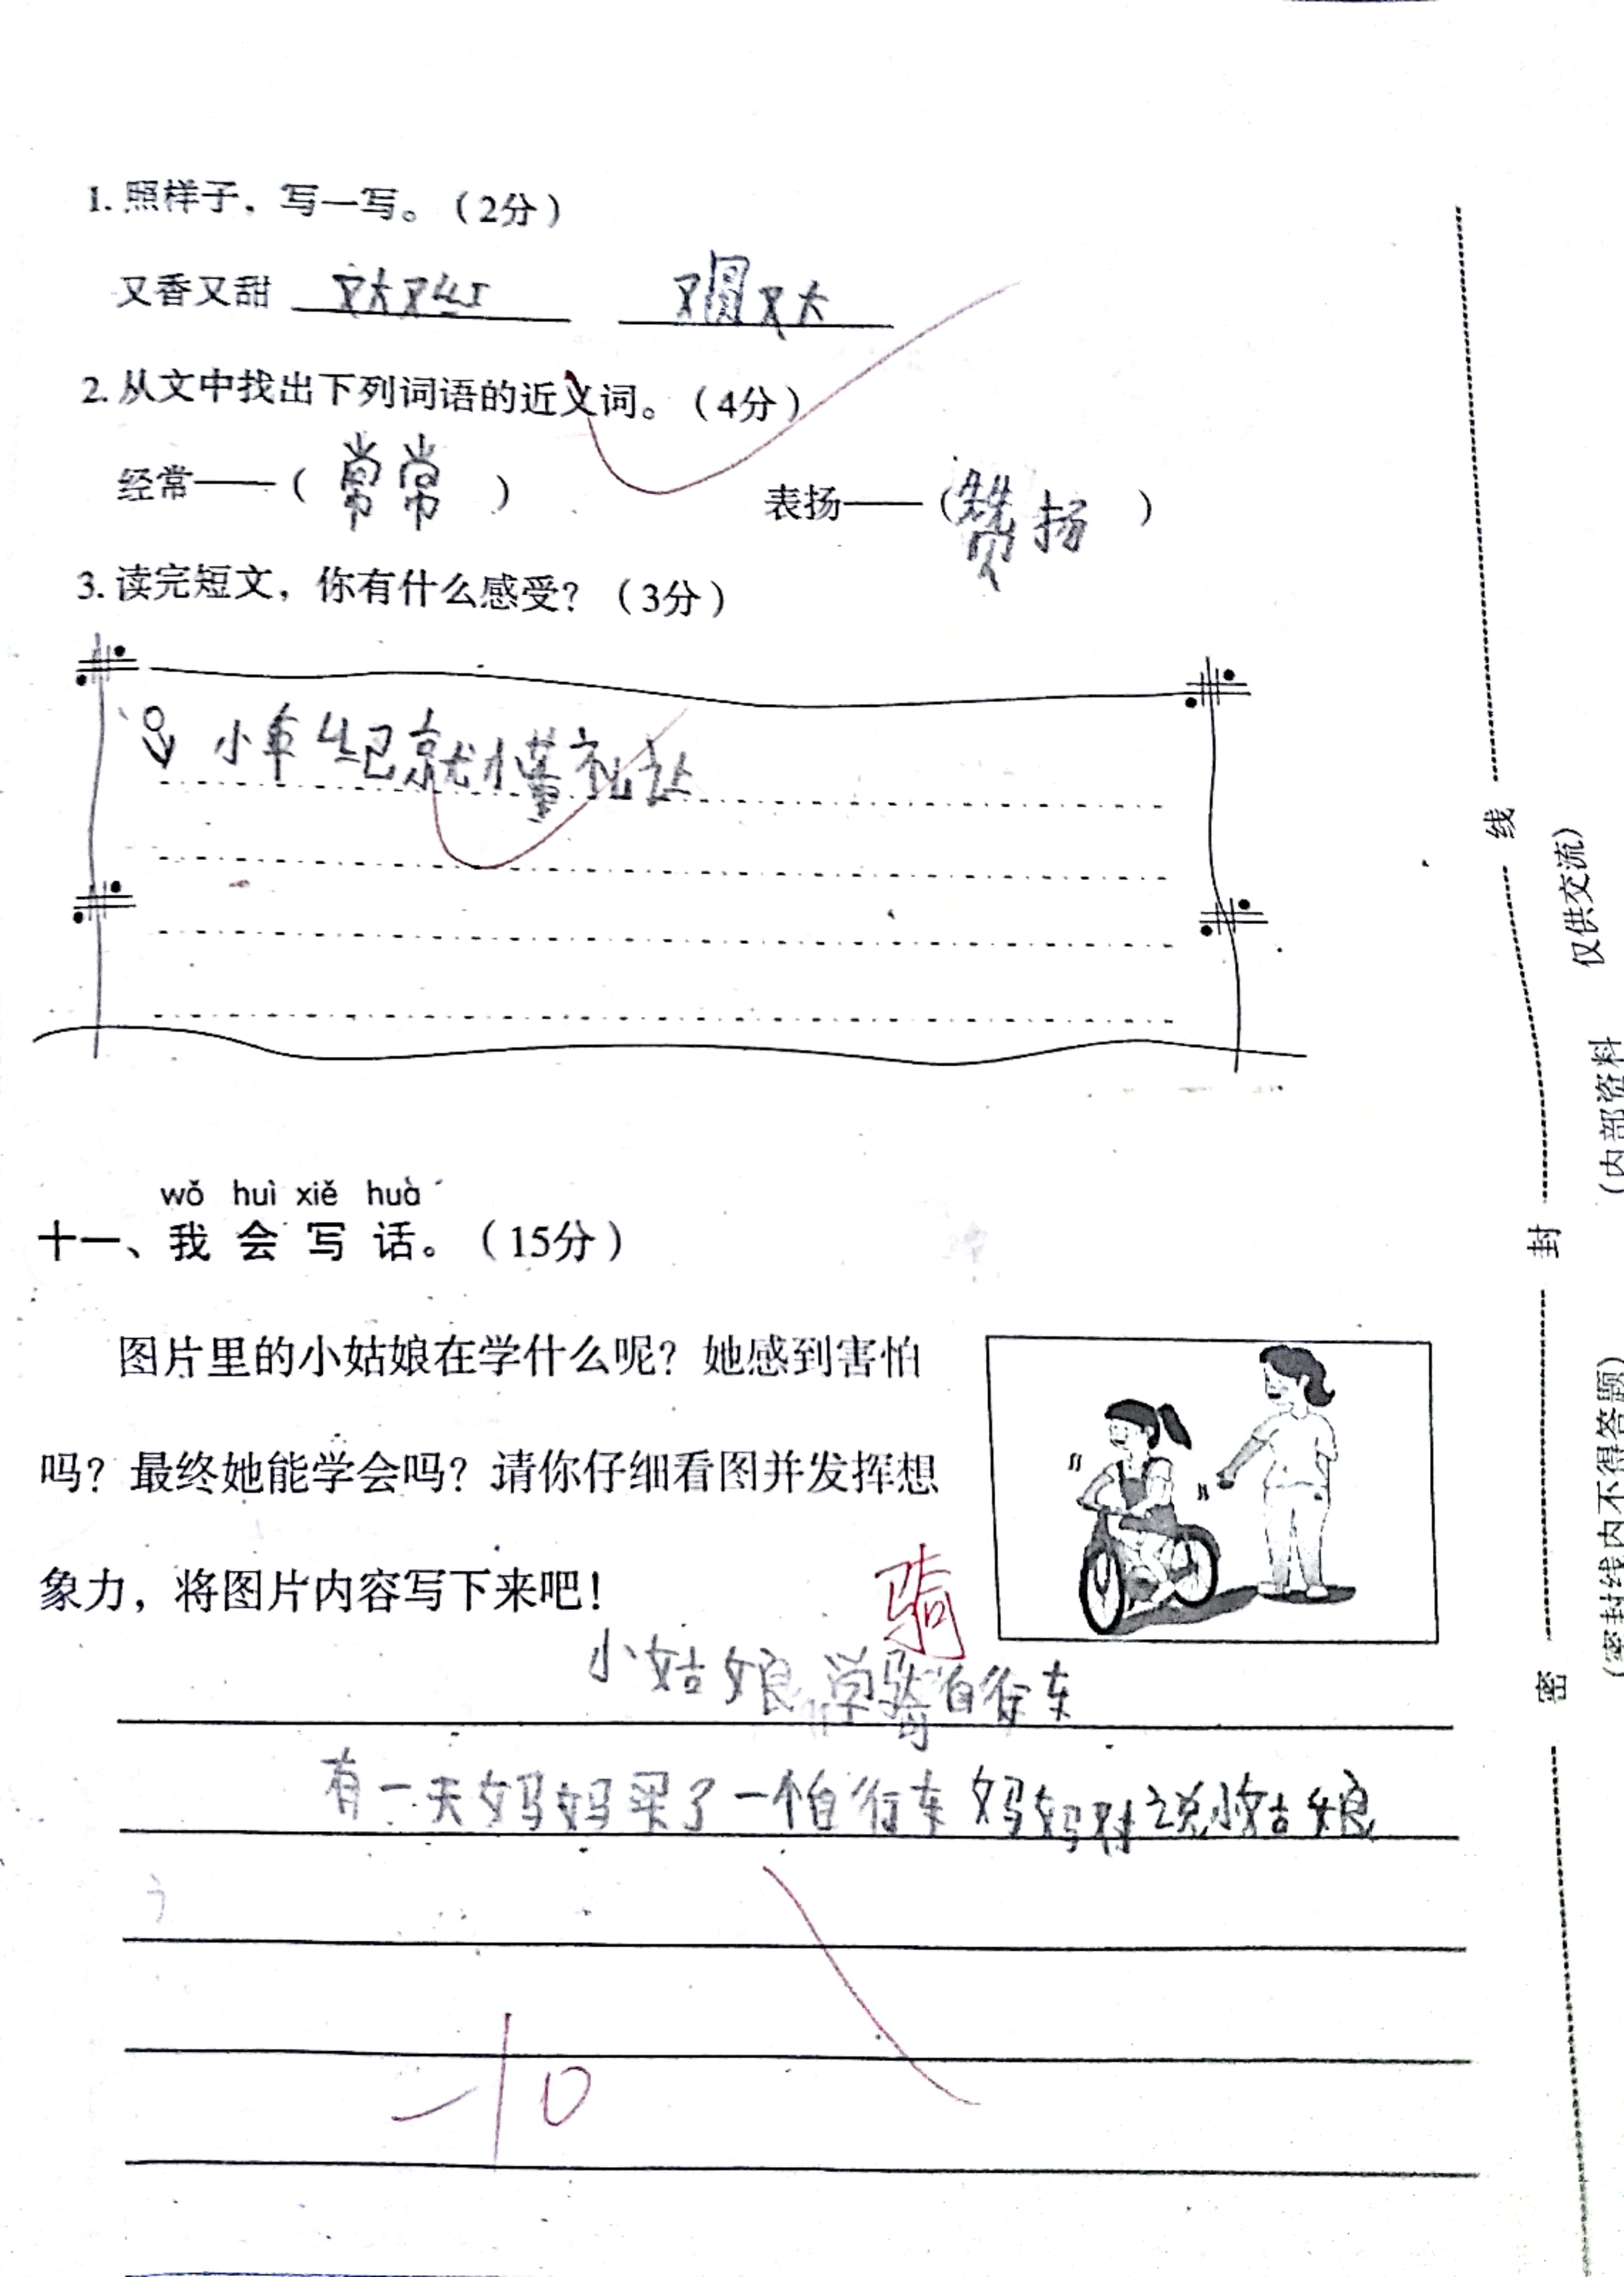 1. 照样子，写一写。（2分）
又香又甜 又大又红 又圆又大
2. 从文中找出下列词语的近义词。（4分）
经常——（ 常常 ） 表扬——（ 赞扬 ）
3. 读完短文，你有什么感受？（3分）
小年纪就懂礼让
wǒ huì xiě huà
十一、我会写话。（15分）
图片里的小姑娘在学什么呢？她感到害怕
吗？最终她能学会吗？请你仔细看图并发挥想
象力，将图片内容写下来吧！
骑
小姑娘学骑自行车
有一天妈妈买了一个自行车妈妈对说小姑娘
-10
线
封
密
仅供交流）
（内部资料
（密封线内不得答题）